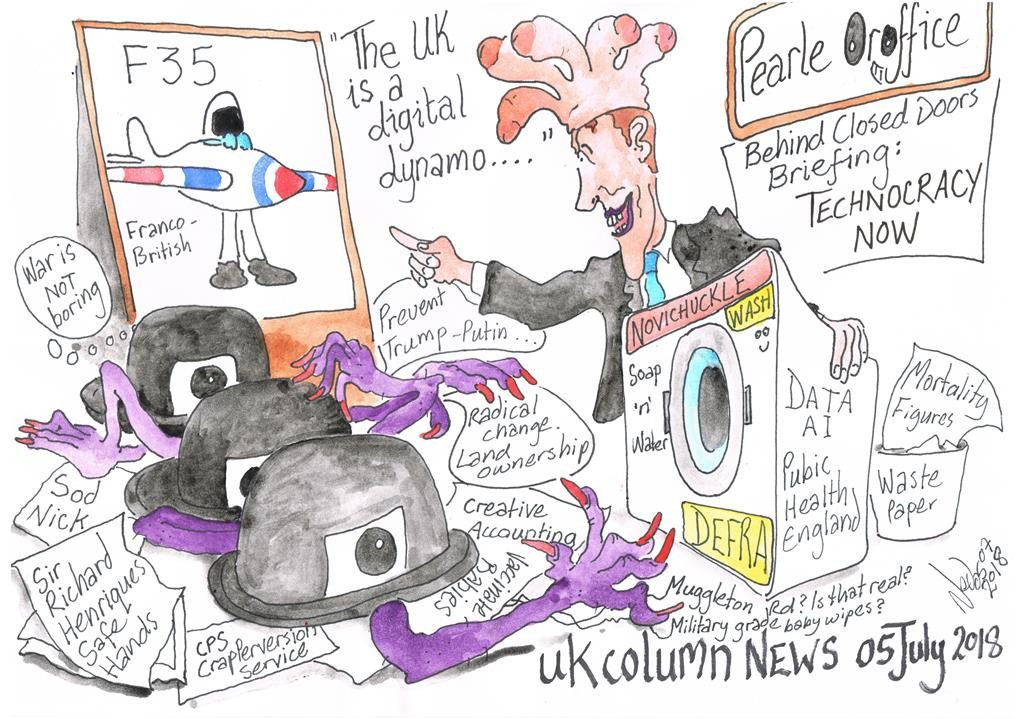 F35
Franco-
British
"The UK
is a
digital
dynamo....."
Pearle Oroffice
Behind Closed Doors
Briefing:
TECHNOCRACY
NOW
War is
NOT
boring
Prevent
Trump-Putin...
NOVICHUCKLE
WASH
Soap
'n'
Water
DEFRA
DATA
AI
Pubic
Health
England
Mortality
Figures
Waste
Paper
Radical
change.
Land
ownership
Creative
Accounting
Sod
Nick
Sir
Richard
Henriques
Safe
Hands
CPS
Crapperversion
service
Vaccine
Rabies
Muggleton Rd? Is that real?
Military grade baby wipes?
UK column NEWS 05 July 2018